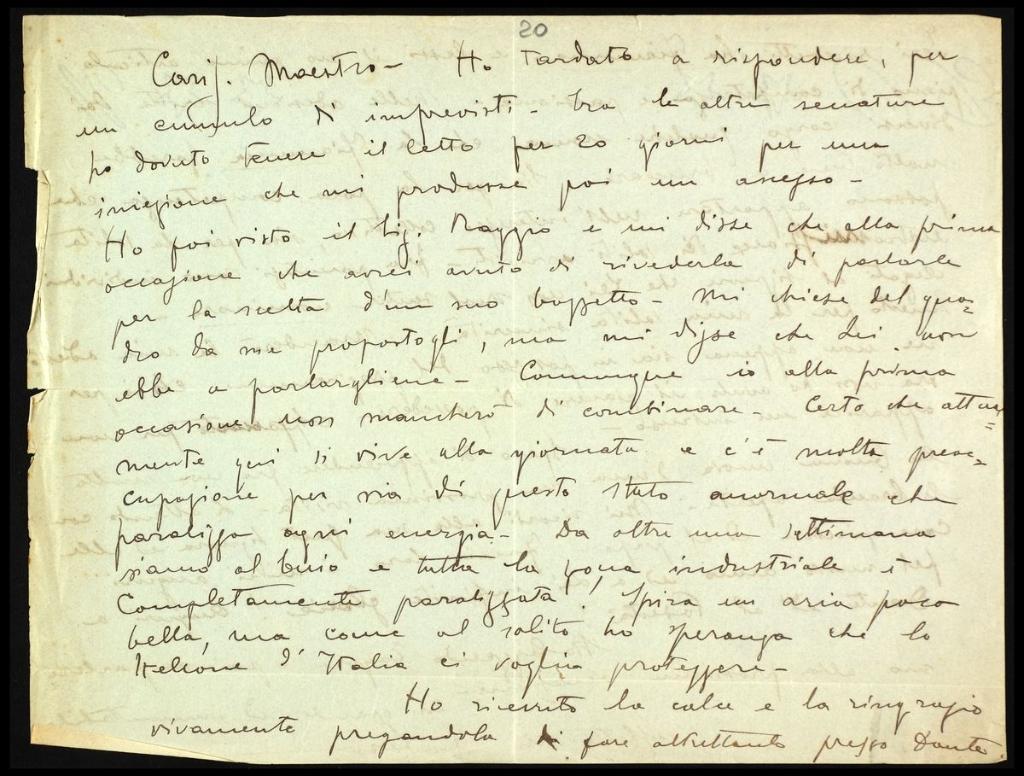 20
Cariss. Maestro - Ho tardato a rispondere, per
un cumulo di imprevisti - tra le altre seccature
ho dovuto tenere il letto per 20 giorni per una
iniezione che mi produsse poi un ascesso -
Ho poi visto il Sig. Raggio e mi disse che alla prima
occasione che avrei avuto di rivederla di parlarle
per la scelta d'un suo bozzetto - Mi chiese del qua=
dro da me propostogli, ma mi disse che Lei non
ebbe a parlargliene - Comunque io alla prima
occasione non mancherò di combinare - Certo che attual=
mente qui si vive alla giornata e c'è molta preoc=
cupazione per via di questo stato anormale che
paralizza ogni energia - Da oltre una settimana
siamo al buio e tutta la zona industriale è
Completamente paralizzata! Spira un aria poco
bella, ma come al solito ho speranza che lo
Stellone d'Italia ci voglia proteggere -
Ho ricevuto la calce e la ringrazio
vivamente pregandola di fare altrettanto presso Dante.